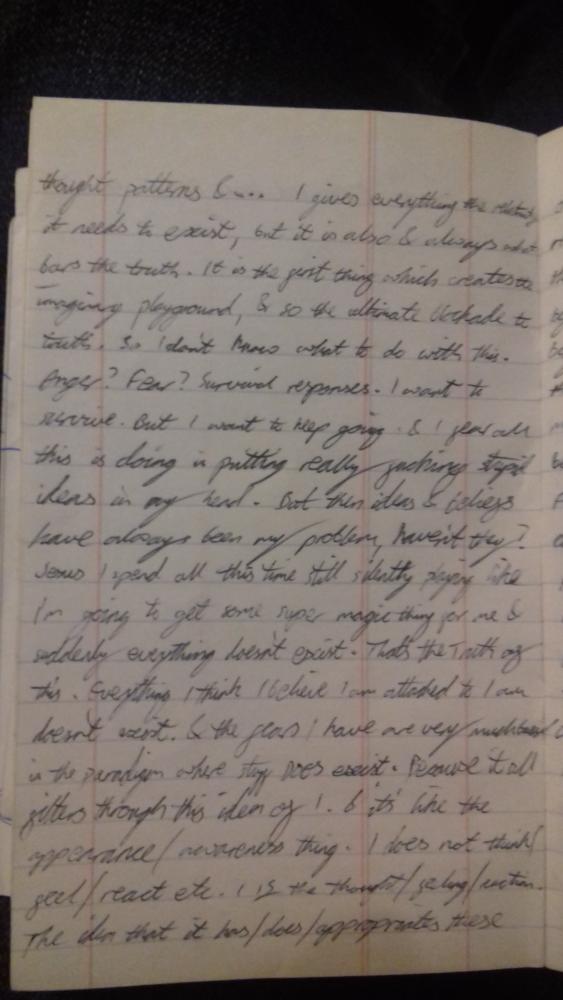 thought patterns &... I gives everything the relativity
it needs to exist, but it is also & always what
bars the truth. It is the first thing which creates the
imaginary playground, & so the ultimate blockade to
truth. So I don't know what to do with this.
Anger? Fear? Survival responses. I want to
survive. But I want to keep going. & I fear all
this is doing is putting really fucking stupid
ideas in my head. But then ideas & beliefs
have always been my problem, haven't they?
Jesus I spend all this time still silently praying like
I'm going to get some super magic thing for me &
suddenly everything doesn't exist. That's the Truth of
this. Everything I think I believe I am attached to I am
doesn't exist. & the fears I have are very much based
in the paradigm where stuff DOES exist. Because it all
filters through this idea of I. & it's like the
appearance/awareness thing. I does not think/
feel/react etc. I IS the thought/feeling/action.
The idea that it has/does/appropriates these